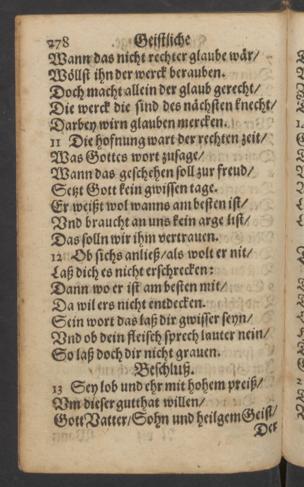 278 Geistliche
Wann das nicht rechter glaube wär/
Wöllst ihn der werck berauben.
Doch macht allein der glaub gerecht/
Die werck die sind des nächsten knecht/
Darbey wirn glauben mercken.
11 Die hofnung wart der rechten zeit/
Was Gottes wort zusage/
Wann das geschehen soll zur freud/
Setzt Gott kein gwissen tage.
Er weißt wol wanns am besten ist/
Vnd braucht an uns kein arge list/
Das solln wir ihm vertrauen.
12 Ob sichs anließ/als wolt er nit/
Laß dich es nicht erschrecken:
Dann wo er ist am besten mit/
Da wil ers nicht entdecken.
Sein wort das laß dir gwisser seyn/
Vnd ob dein fleisch sprech lauter nein/
So laß doch dir nicht grauen.
Beschluß.
13 Sey lob und ehr mit hohem preiß/
Vm dieser gutthat willen/
Gott Vatter/Sohn und heilgem Geist/
Der